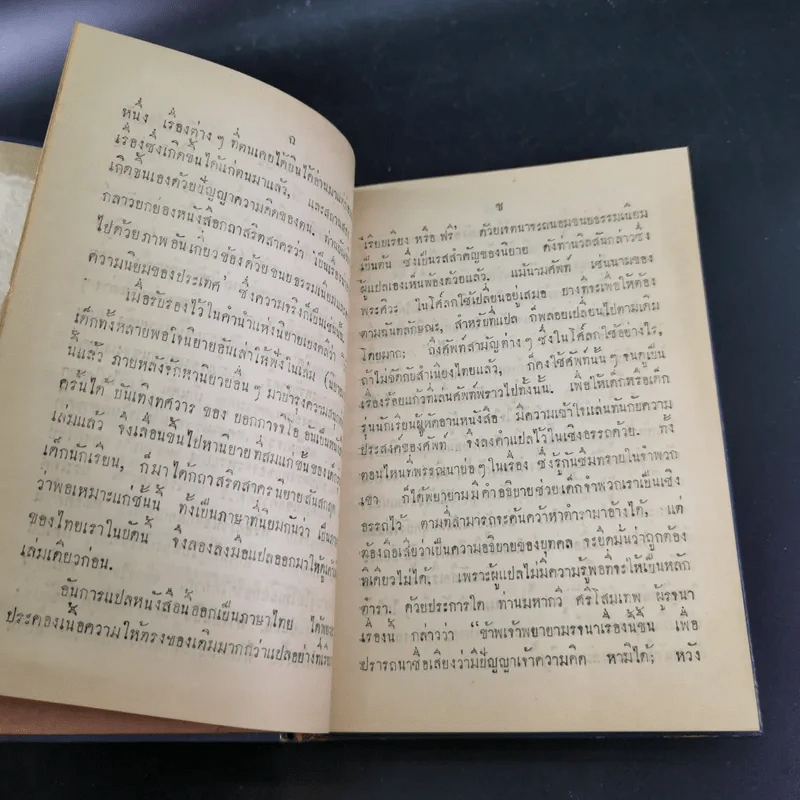 ถ
หนึ่ง เรื่องต่าง ๆ ที่ตนเคยได้ยินได้อ่านมาแต่
เรื่องซึ่งเกิดขึ้นได้แก่ตนมาแล้ว,
เกิดขึ้นเองด้วยปัญญาความคิดของตน.
กล่าวยกย่องหนังสือกถาสริตสาครว่า
ไปด้วยภาพอันเกี่ยวข้องด้วยขนบธรรมเนียม
ความนิยมของประเทศ' ซึ่งความจริงก็เป็นเช่นนั้น
เมื่อรับรองไว้ในคำนำแห่งนิยายเอง
เด็กทั้งหลายพอใจนิยายอันเล่าให้ฟังในเล่ม
นี้แล้ว ภายหลังจักหานิยายอื่น ๆ มาบำรุงความ
ครั้นได้ บันเทิงทศวาร ของ ยอกกาจจิโอ
เล่มแล้ว จึงเลื่อนขึ้นไปหานิยายที่สมแก่ชั้นของเด็ก
เด็กนักเรียน, ก็มาได้กถาสริตสาครนิยายสันสกฤต
ว่าพอเหมาะแก่ชั้นนี้ ทั้งเป็นภาษาที่นิยมกันว่า
ของไทยเราในบัดนี้ จึงลองลงมือแปลออกมาให้ดู
เล่มเดียวก่อน.
อันการแปลหนังสือนี้ออกเป็นภาษาไทย ได้
ประคองเนื้อความให้ตรงของเดิมมากกว่าแปลอย่างที่
ช
เรียบเรียง หรือ ฟรี' ด้วยเจตนาจะถนอมขนบธรรมเนียม
เป็นต้น ซึ่งเป็นรสสำคัญของนิยาย ดังท่านวิลสันกล่าวซึ่ง
ผู้แปลเองเห็นพ้องด้วยแล้ว. แม้นามศัพท์ เช่นนามของ
พระศิวะ ในโศลกใช้เปลี่ยนอยู่เสมอ บางทีจะเพื่อให้ต้อง
ตามฉันทลักษณะ, สำหรับที่แปล ก็พลอยเปลี่ยนไปตามเดิม
โดยมาก: ถึงศัพท์สามัญต่าง ๆ ซึ่งในโศลกใช้อย่างไร,
ถ้าไม่ขัดกับสำเนียงไทยแล้ว, ก็คงใช้ศัพท์นั้น ๆ จนดูเป็น
เรื่องร้อยแก้วที่เล่นศัพท์พราวไปทั้งนั้น. เพื่อให้เด็กหรือเด็ก
รุ่นนักเรียนผู้หัดอ่านหนังสือ มีความเข้าใจแล่นทันกับความ
ประสงค์ของศัพท์ จึงลงคำแปลไว้ในเชิงอรรถด้วย. ทั้ง
ตอนไหนที่พรรณนาย่อ ๆ ในเรื่อง ซึ่งรู้กันซึมทราบในจำพวก
เขา ก็ได้พยายามมีคำอธิบายช่วยเด็กจำพวกเราเป็นเชิง
อรรถไว้ ตามที่สามารถจะค้นคว้าหาตำรามาอ้างได้, แต่
ต้องถือเสียว่าเป็นความอธิบายของบุคคล จะยึดมั่นว่าถูกต้อง
ทีเดียวไม่ได้. เพราะผู้แปลไม่มีความรู้พอที่จะให้เป็นหลัก
ตำรา. ด้วยประการใด ท่านมหากวี ศรีโสมเทพ ผู้รจนา
เรื่องนี้ กล่าวว่า "ข้าพเจ้าพยายามรจนาเรื่องนี้ขึ้น เพื่อ
ปรารถนาชื่อเสียงว่ามีปัญญาเจ้าความคิด หามิได้; หวัง